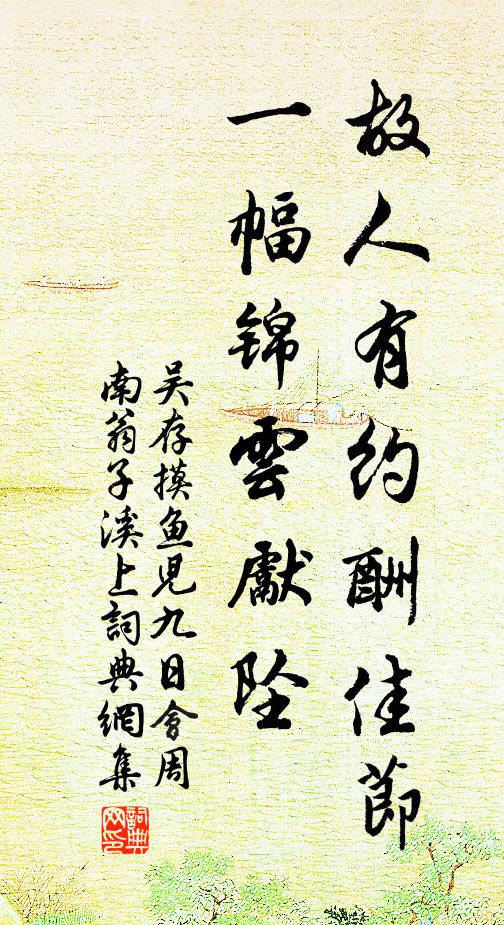 故人有约酬佳節
一幅锦雲獻坠
吴存摸鱼児九日會周
南翁子溪上詞典網集
詞典
网印